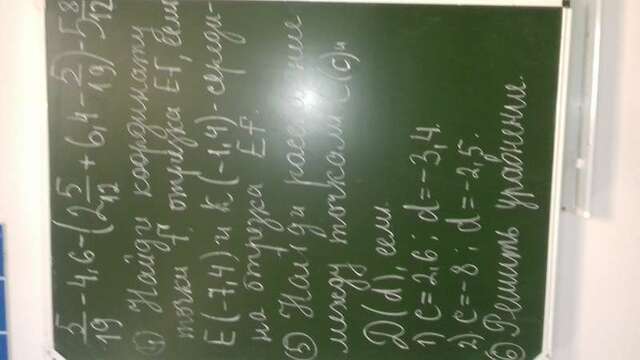 5/19 - 4,6 - (2 5/12 + 6,4 - 2/19) - 5 8/12
④ Найди координату
точки F отрезка EF, если
E(-7,4) и K(-1,4) - середи-
на отрезка EF.
⑤ Найди расстояние
между точками C(c) и
D(d), если
1) c = 2,6; d = -3,4.
2) c = -8; d = -2,5.
⑥ Решить уравнение.